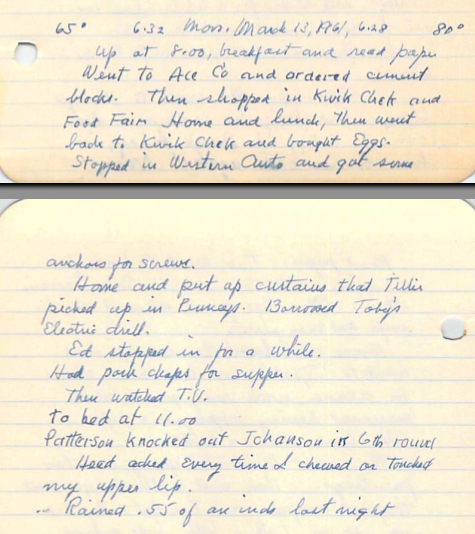 65° 6.32 Mon. March 13, 1961, 6.28 80°
Up at 8.00, breakfast and read pape
Went to Ace Co and ordered cement
blocks. Then shopped in Kwik Chek and
Food Fair. Home and lunch, Then went
back to Kwik Chek and bought Eggs.
Stopped in Western Auto and got some
anchors for screws.
Home and put up curtains that Tillie
picked up in Penneys. Borrowed Toby's
Electric drill.
Ed stopped in for a while.
Had pork chops for supper.
Then watched T.V.
To bed at 11.00
Patterson knocked out Johanson in 6th round
Head ached every time I chewed or Touched
my upper lip.
.. Rained .55 of an inch last night